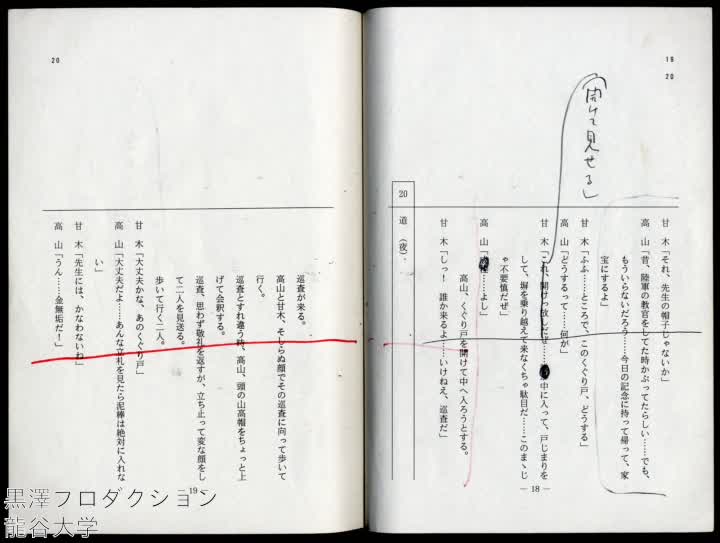 19
20
「開けて見せる」
甘　木「それ、先生の帽子じゃないか」
高　山「昔、陸軍の教官をしてた時かぶってたらしい……でも、
もういらないだろう……今日の記念に持って帰って、家
宝にするよ」
甘　木「ふふ……ところで、このくぐり戸、どうする」
高　山「どうするって……何が」
甘　木「これ、開けっ放しだぜ……中に入って、戸じまりを
して、塀を乗り越えて来なくちゃ駄目だ……このまゝじ
ゃ不要慎だぜ」
高　山「……よし」
高山、くぐり戸を開けて中へ入ろうとする。
甘　木「しっ！　誰か来るよ……いけねえ、巡査だ」
20　道　（夜）
― 18 ―
20
巡査が来る。
高山と甘木、そしらぬ顔でその巡査に向って歩いて
行く。
巡査とすれ違う時、高山、頭の山高帽をちょっと上
げて会釈する。
巡査、思わず敬礼を返すが、立ち止って変な顔をし
て二人を見送る。
歩いて行く二人。
甘　木「大丈夫かな、あのくぐり戸」
高　山「大丈夫だよ……あんな立札を見たら泥棒は絶対に入れな
い」
甘　木「先生には、かなわないね」
高　山「うん……金無垢だ！」
19
黒澤プロダクション
龍谷大学